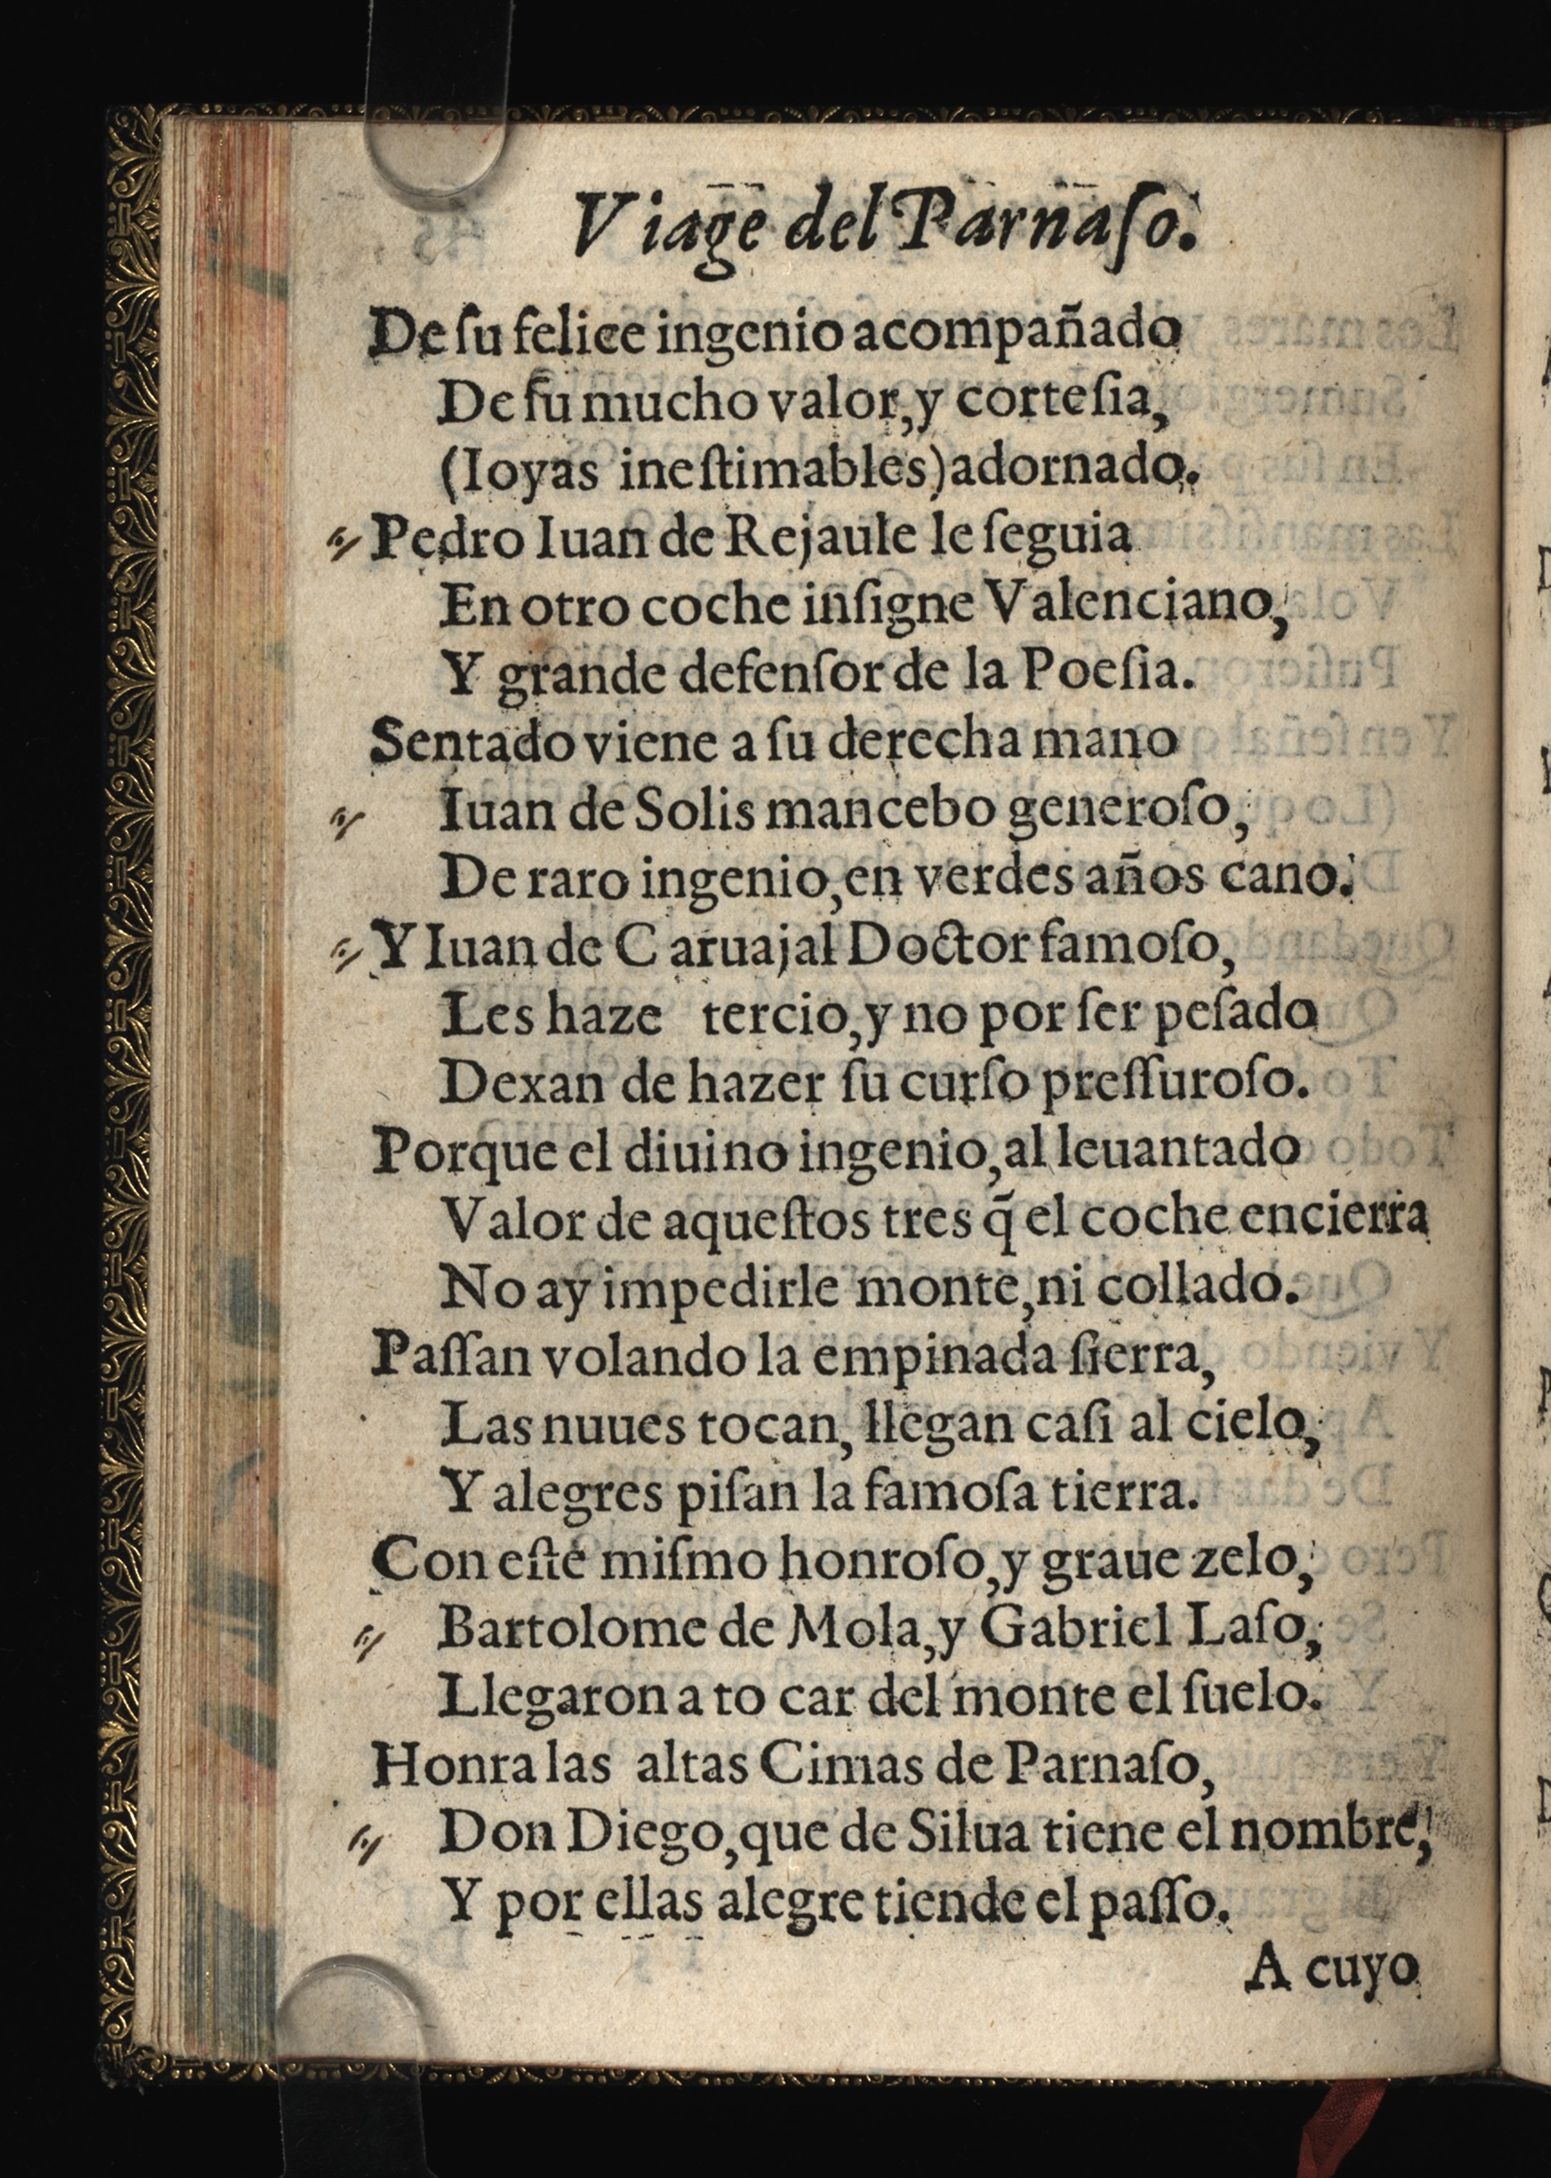 Viage del Parnaſo.
De ſu felice ingenio acompañado
De ſu mucho valor, y corteſia,
(Ioyas ineſtimables) adornado.
Pedro Iuan de Rejaule le ſeguia
En otro coche inſigne Valenciano,
Y grande defenſor de la Poeſia.
Sentado viene a ſu derecha mano
Iuan de Solis mancebo generoſo,
De raro ingenio, en verdes años cano.
Y Iuan de Caruajal Doctor famoſo,
Les haze tercio, y no por ſer peſado
Dexan de hazer ſu curſo preſſuroſo.
Porque el diuino ingenio, al leuantado
Valor de aqueſtos tres q̃ el coche encierra
No ay impedirle monte, ni collado.
Paſſan volando la empinada ſierra,
Las nuues tocan, llegan caſi al cielo,
Y alegres piſan la famoſa tierra.
Con eſte miſmo honroſo, y graue zelo,
Bartolome de Mola, y Gabriel Laſo,
Llegaron a to car del monte el ſuelo.
Honra las altas Cimas de Parnaſo,
Don Diego, que de Silua tiene el nombre,
Y por ellas alegre tiende el paſſo.
A cuyo